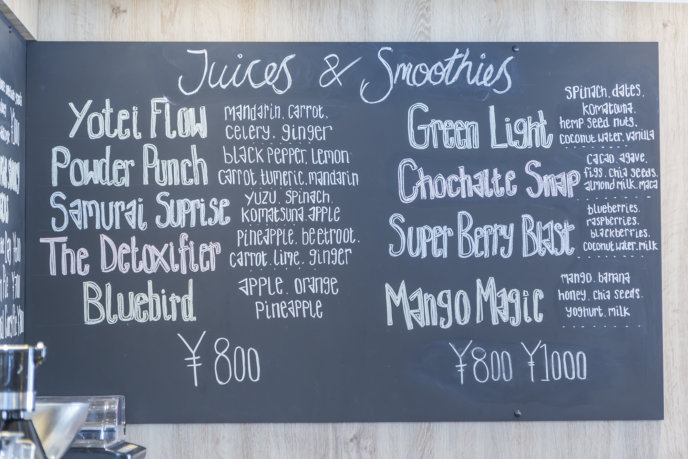 Juices & Smoothies
Yotei Flow
mandarin. carrot.
celery. ginger
Powder Punch
black pepper. lemon
carrot. tumeric. mandarin
Samurai Suprise
yuzu. spinach.
komatsuna. apple
The Detoxifier
pineapple. beetroot.
carrot. lime. ginger
Bluebird
apple. orange
pineapple
¥800
Green Light
spinach. dates.
komatouna.
hemp seed nuts.
coconut water. vanilla
Chocolate Snap
cacao. agave.
figs. chia seeds.
almond milk. maca
Super Berry Blast
blueberries.
raspberries.
blackberries.
coconut water. milk
Mango Magic
mango. banana
honey. chia seeds.
yoghurt. milk
¥800 ¥1000